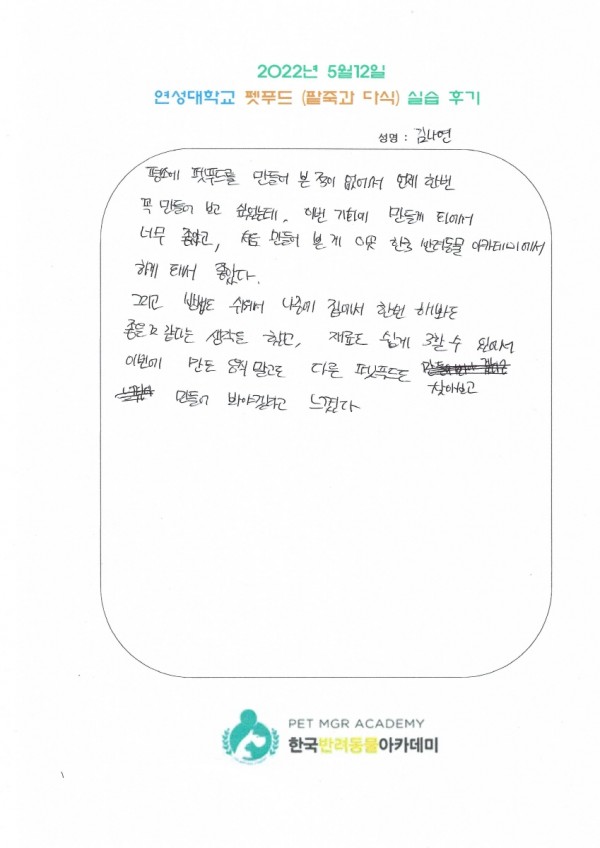 2022년 5월12일
연성대학교 펫푸드 (팥죽과 다식) 실습 후기
성명 : 김나연
평소에 펫푸드를 만들어 본 적이 없어서 언제 한번
꼭 만들어 보고 싶었는데, 이번 기회에 만들게 되어서
너무 좋았고, 처음 만들어 본 게 한국 반려동물 아카데미에서
하게 돼서 좋았다.
그리고 방법도 쉬워서 나중에 집에서 한번 해봐도
좋을 것 같다는 생각도 했고, 재료도 쉽게 구할 수 있어서
이번에 만든 음식 말고도 다른 펫푸드도
찾아보고
만들어 봐야겠다고 느꼈다
PET MGR ACADEMY
한국반려동물아카데미